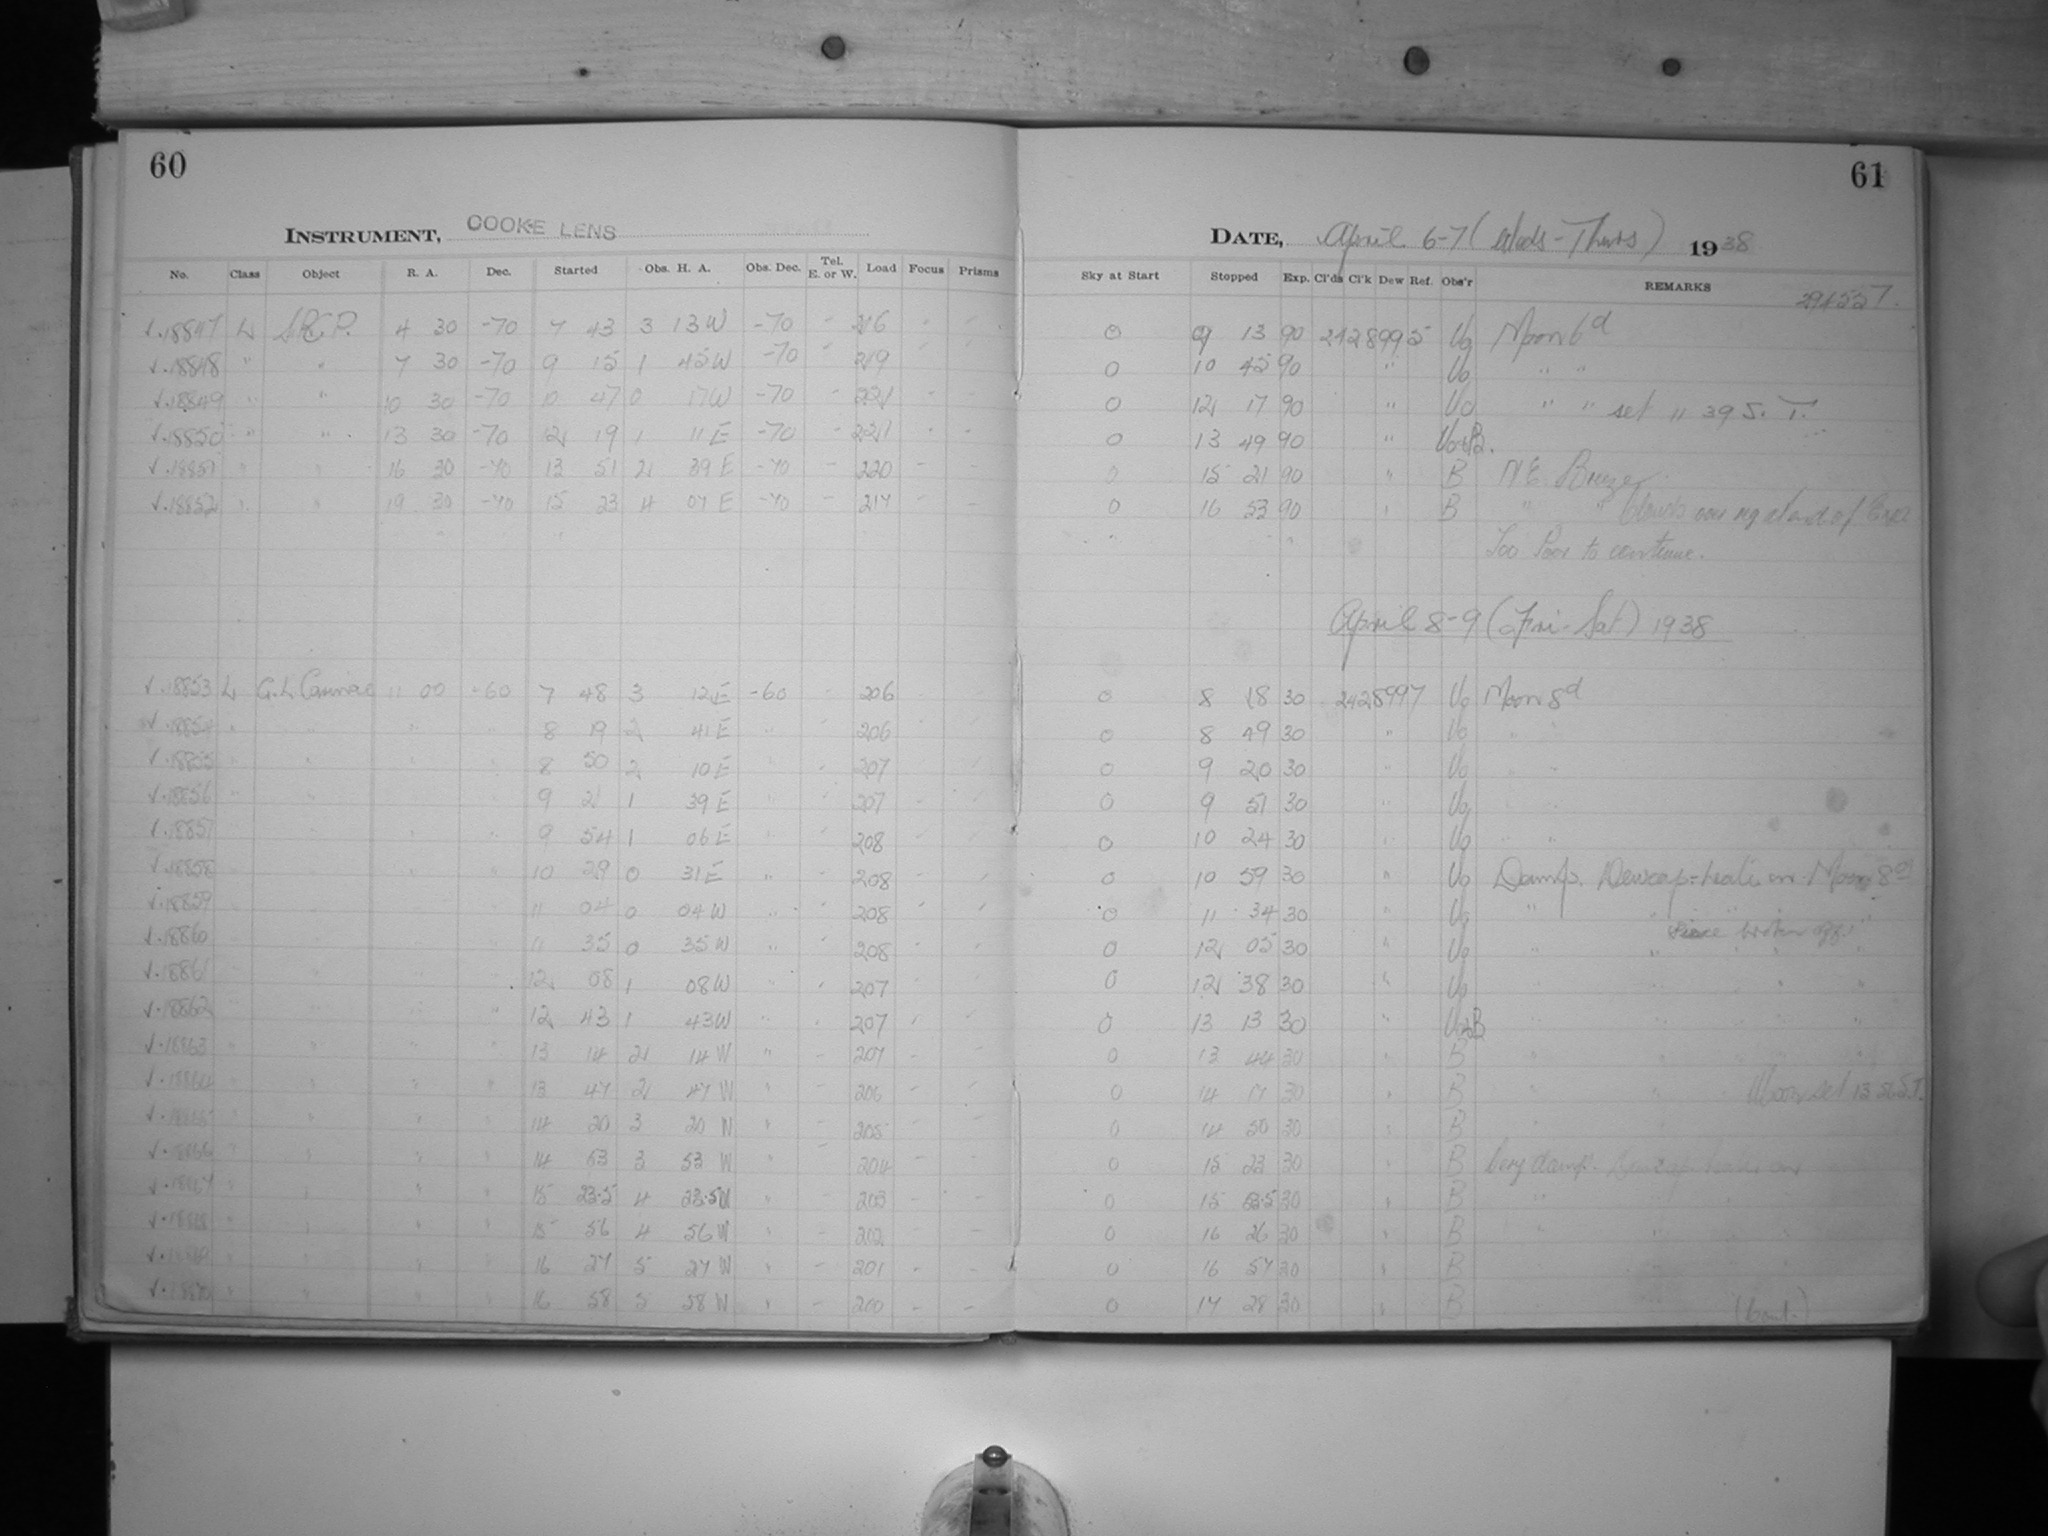 60
INSTRUMENT, COOKE LENS
No. Class Object R. A. Dec. Started Obs. H. A. Obs. Dec. Tel. E. or W. Load Focus Prisms
18847 L 4 30 -70 7 43 3 13 W -70 216
18848 " " 7 30 -70 9 15 1 45 W -70 219
18849 " " 10 30 -70 10 47 0 17 W -70 221
18850 " " 13 30 -70 12 19 1 11 E -70 221
18851 " " 16 30 -70 13 51 2 39 E -70 220
18852 " " 19 30 -70 15 23 4 07 E -70 217
18853 L G. L. Carinae 11 00 -60 7 48 3 12 E -60 206
18854 " " " " 8 19 2 41 E " 206
18855 " " " " 8 50 2 10 E " 207
18856 " " " " 9 21 1 39 E " 207
18857 " " " " 9 54 1 06 E " 208
18858 " " " " 10 29 0 31 E " 208
18859 " " " " 11 04 0 04 W " 208
18860 " " " " 11 35 0 35 W " 208
18861 " " " " 12 08 1 08 W " 207
18862 " " " " 12 43 1 43 W " 207
18863 " " " " 13 14 2 14 W " 207
18864 " " " " 13 47 2 47 W " 206
18865 " " " " 14 20 3 20 W " 205
18866 " " " " 14 53 3 53 W " 204
18867 " " " " 15 23.5 4 23.5 W " 203
18868 " " " " 15 56 4 56 W " 202
18869 " " " " 16 27 5 27 W " 201
18870 " " " " 16 58 5 58 W " 200
61
DATE, April 6-7 (Weds-Thurs) 1938
Sky at Start Stopped Exp. Cl'ds Cl'k Dew Ref. Obs'r REMARKS
0 9 13 90 2428995 Vo Moon 6d
0 10 45 90 " Vo " "
0 12 17 90 " Vo " " set 11 39 S. T.
0 13 49 90 " Vo+B.
0 15 21 90 " B N E. Breeze
0 16 53 90 " B " " Clouds
Too Poor to continue.
April 8-9 (Fri-Sat) 1938
0 8 18 30 2428997 Vo Moon 8d
0 8 49 30 " Vo " "
0 9 20 30 " Vo " "
0 9 51 30 " Vo " "
0 10 24 30 " Vo " "
0 10 59 30 " Vo Damp. Dewcap-heater on. Moon 8d
0 11 34 30 " Vo " " "
0 12 05 30 " Vo " " " "
0 12 38 30 " Vo " " " "
0 13 13 30 " Vo+B " " " "
0 13 44 30 " B " " " "
0 14 17 30 " B " " Moon set 13 56 S.T.
0 14 50 30 " B " "
0 15 23 30 " B Very damp. Dewcap-heater on
0 15 53.5 30 " B " " "
0 16 26 30 " B " " "
0 16 57 30 " B " " "
0 17 28 30 " B " (Cont.)